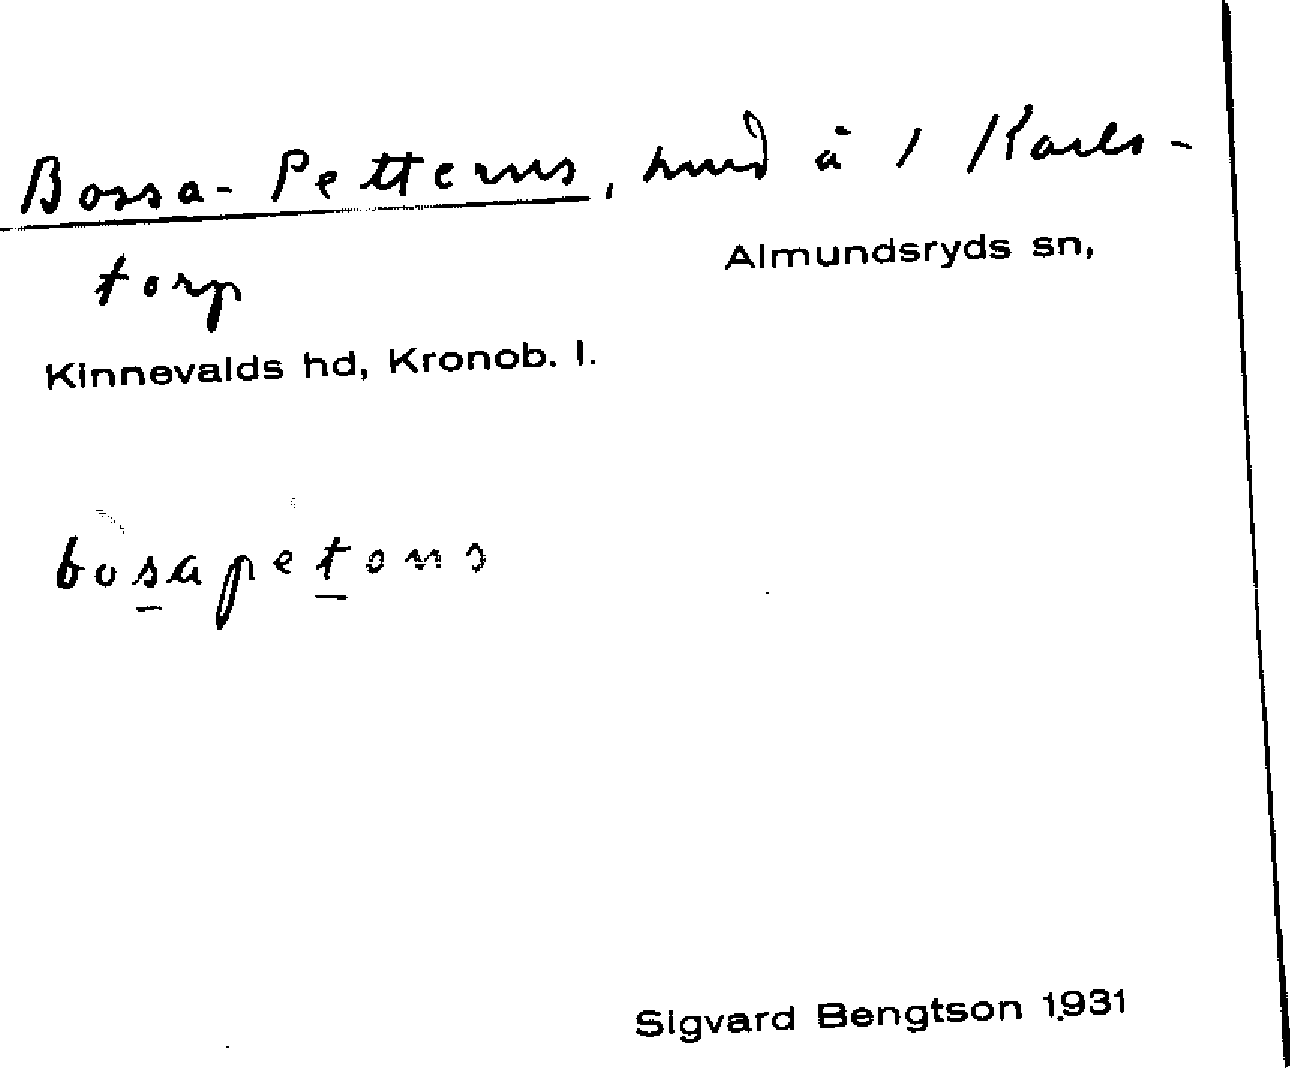 Bossa-Petterns, hmd å 1 Karls-
torp
Almundsryds sn,
Kinnevalds hd, Kronob. l.
bosapetons
Sigvard Bengtson 1931